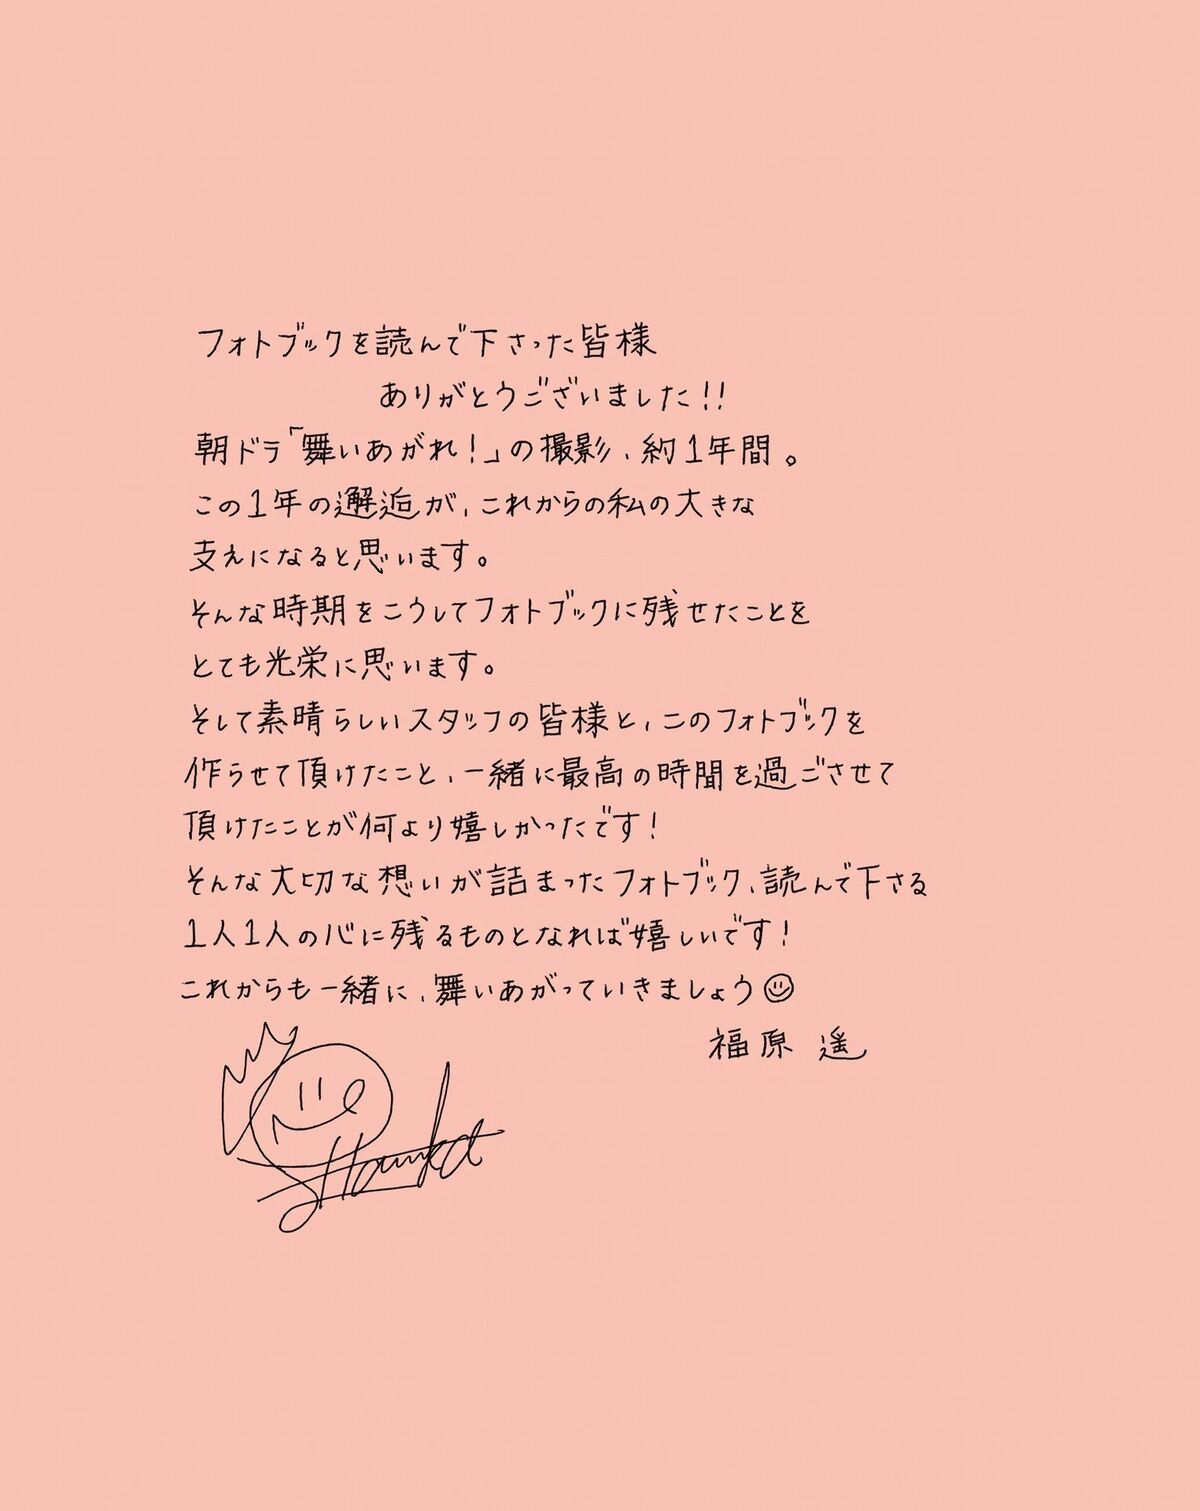 フォトブックを読んで下さった皆様
ありがとうございました!!
朝ドラ「舞いあがれ!」の撮影、約1年間。
この1年の邂逅が、これからの私の大きな
支えになると思います。
そんな時期をこうしてフォトブックに残せたことを
とても光栄に思います。
そして素晴らしいスタッフの皆様と、このフォトブックを
作らせて頂けたこと、一緒に最高の時間を過ごさせて
頂けたことが何より嬉しかったです!
そんな大切な想いが詰まったフォトブック、読んで下さる
1人1人の心に残るものとなれば嬉しいです!
これからも一緒に、舞いあがっていきましょう☺
福原 遥
Haruka